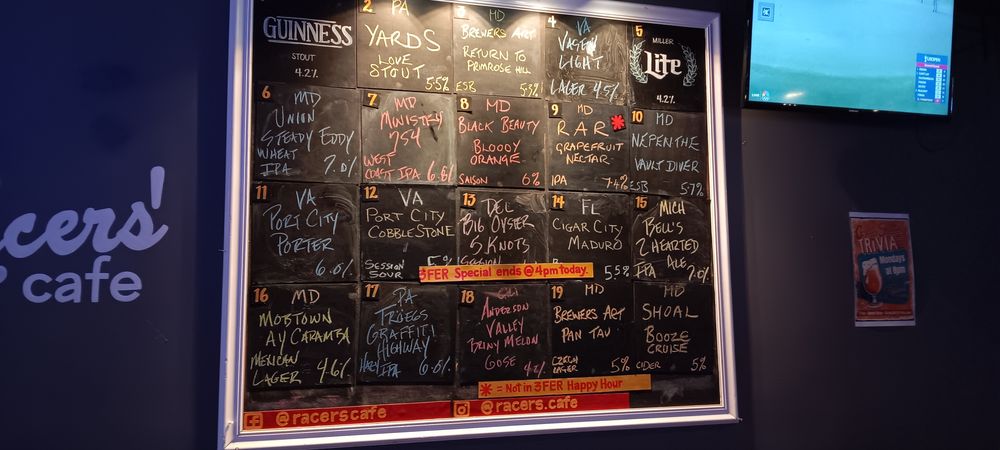 GUINNESS
STOUT
4.2%
2 PA
YARDS
LOVE
STOUT
5.5%
3 MD
BREWERS ART
RETURN TO
PRIMROSE HILL
ESB 5.5%
4 VA
LIGHT
LAGER 4.5%
5 MILLER
Lite
4.2%
6 MD
UNION
STEADY EDDY
WHEAT
IPA 7.0%
7 MD
MINISTRY
754
WEST
COAST IPA 6.8%
8 MD
BLACK BEAUTY
BLOODY
ORANGE
SAISON 6%
9 MD
RAR
GRAPEFRUIT
NECTAR
IPA 7.4%
10 MD
NEPENTHE
VAULT DIVER
ESB 5.7%
11 VA
PORT CITY
PORTER
6.0%
12 VA
PORT CITY
COBBLESTONE
SESSION
SOUR 5%
13 DEL
BIG OYSTER
5 KNOTS
SESSION
14 FL
CIGAR CITY
MADURO
5.5%
15 MICH
BELL'S
2 HEARTED
ALE
IPA 7.0%
3FER Special ends @ 4pm today.
16 MD
MOBTOWN
AY CARAMBA
MEXICAN
LAGER 4.6%
17 PA
TRÖEGS
GRAFFITI
HIGHWAY
HAZY IPA 6.0%
18 CALI
ANDERSON
VALLEY
BRINY MELON
GOSE 4.2%
19 MD
BREWERS ART
PAN TAU
CZECH
LAGER 5%
MD
SHOAL
BOOZE
CRUISE
CIDER 5%
* = Not in 3FER Happy Hour
@racerscafe
@racers.cafe
cers'
cafe
TRIVIA
Mondays